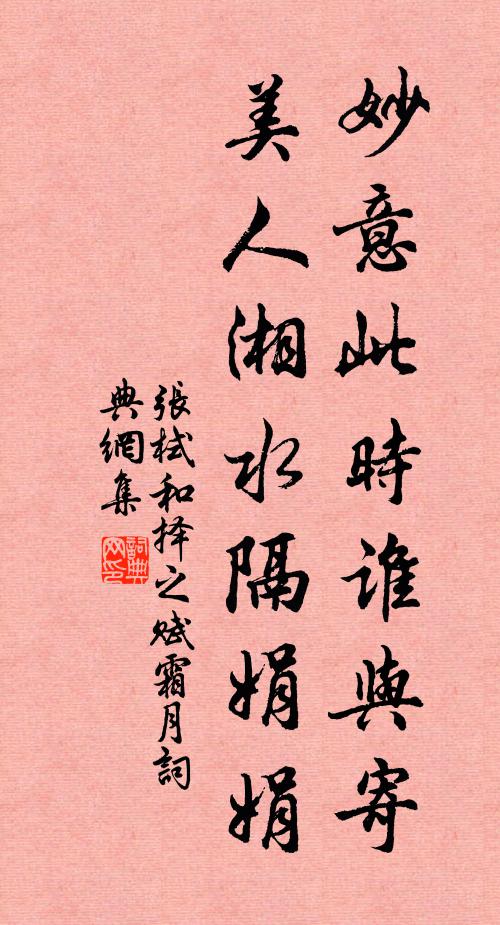 妙意此時誰與寄
美人湘水隔娟娟
張栻和择之赋霜月詞
典網集
詞典
网印